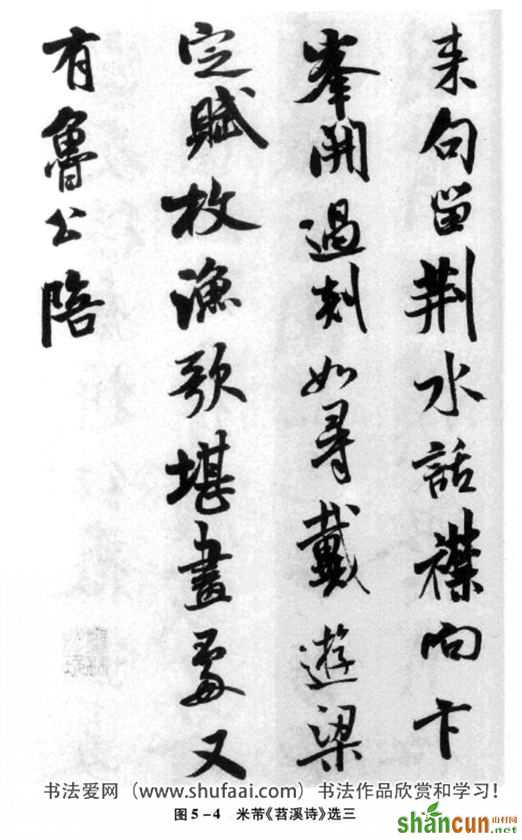 来句留荆水話襟向卞
峯開過剡如尋戴遊梁
定賦枚漁歌堪畫處又
有魯公陪
书法爱网（www.shufaai.com）书法作品欣赏和学习！
图5-4 米芾《苕溪诗》选三
shancun 山村网
.net